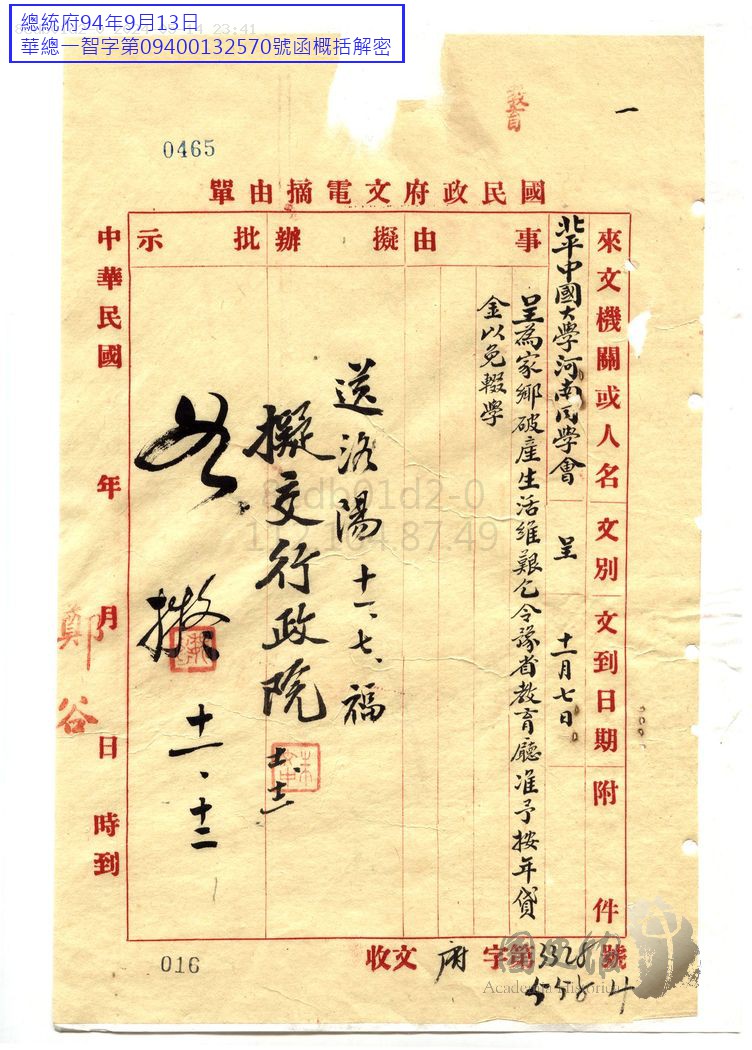 總統府94年9月13日
華總一智字第09400132570號函概括解密
一
教育
0465
國民政府文電摘由單
來文機關或人名
文別
文到日期
附件
北平中國大學河南同學會
呈
十一月七日
事由
呈為家鄉破產生活維艱乞令豫省教育廳准予按年貸
金以免輟學
擬辦
送洛陽十一、七、福
擬交行政院
批示
十一、十二
中華民國 年 月 日 時到
鄭
谷
收文 府 字第 號
016
國史館
Academia Historica